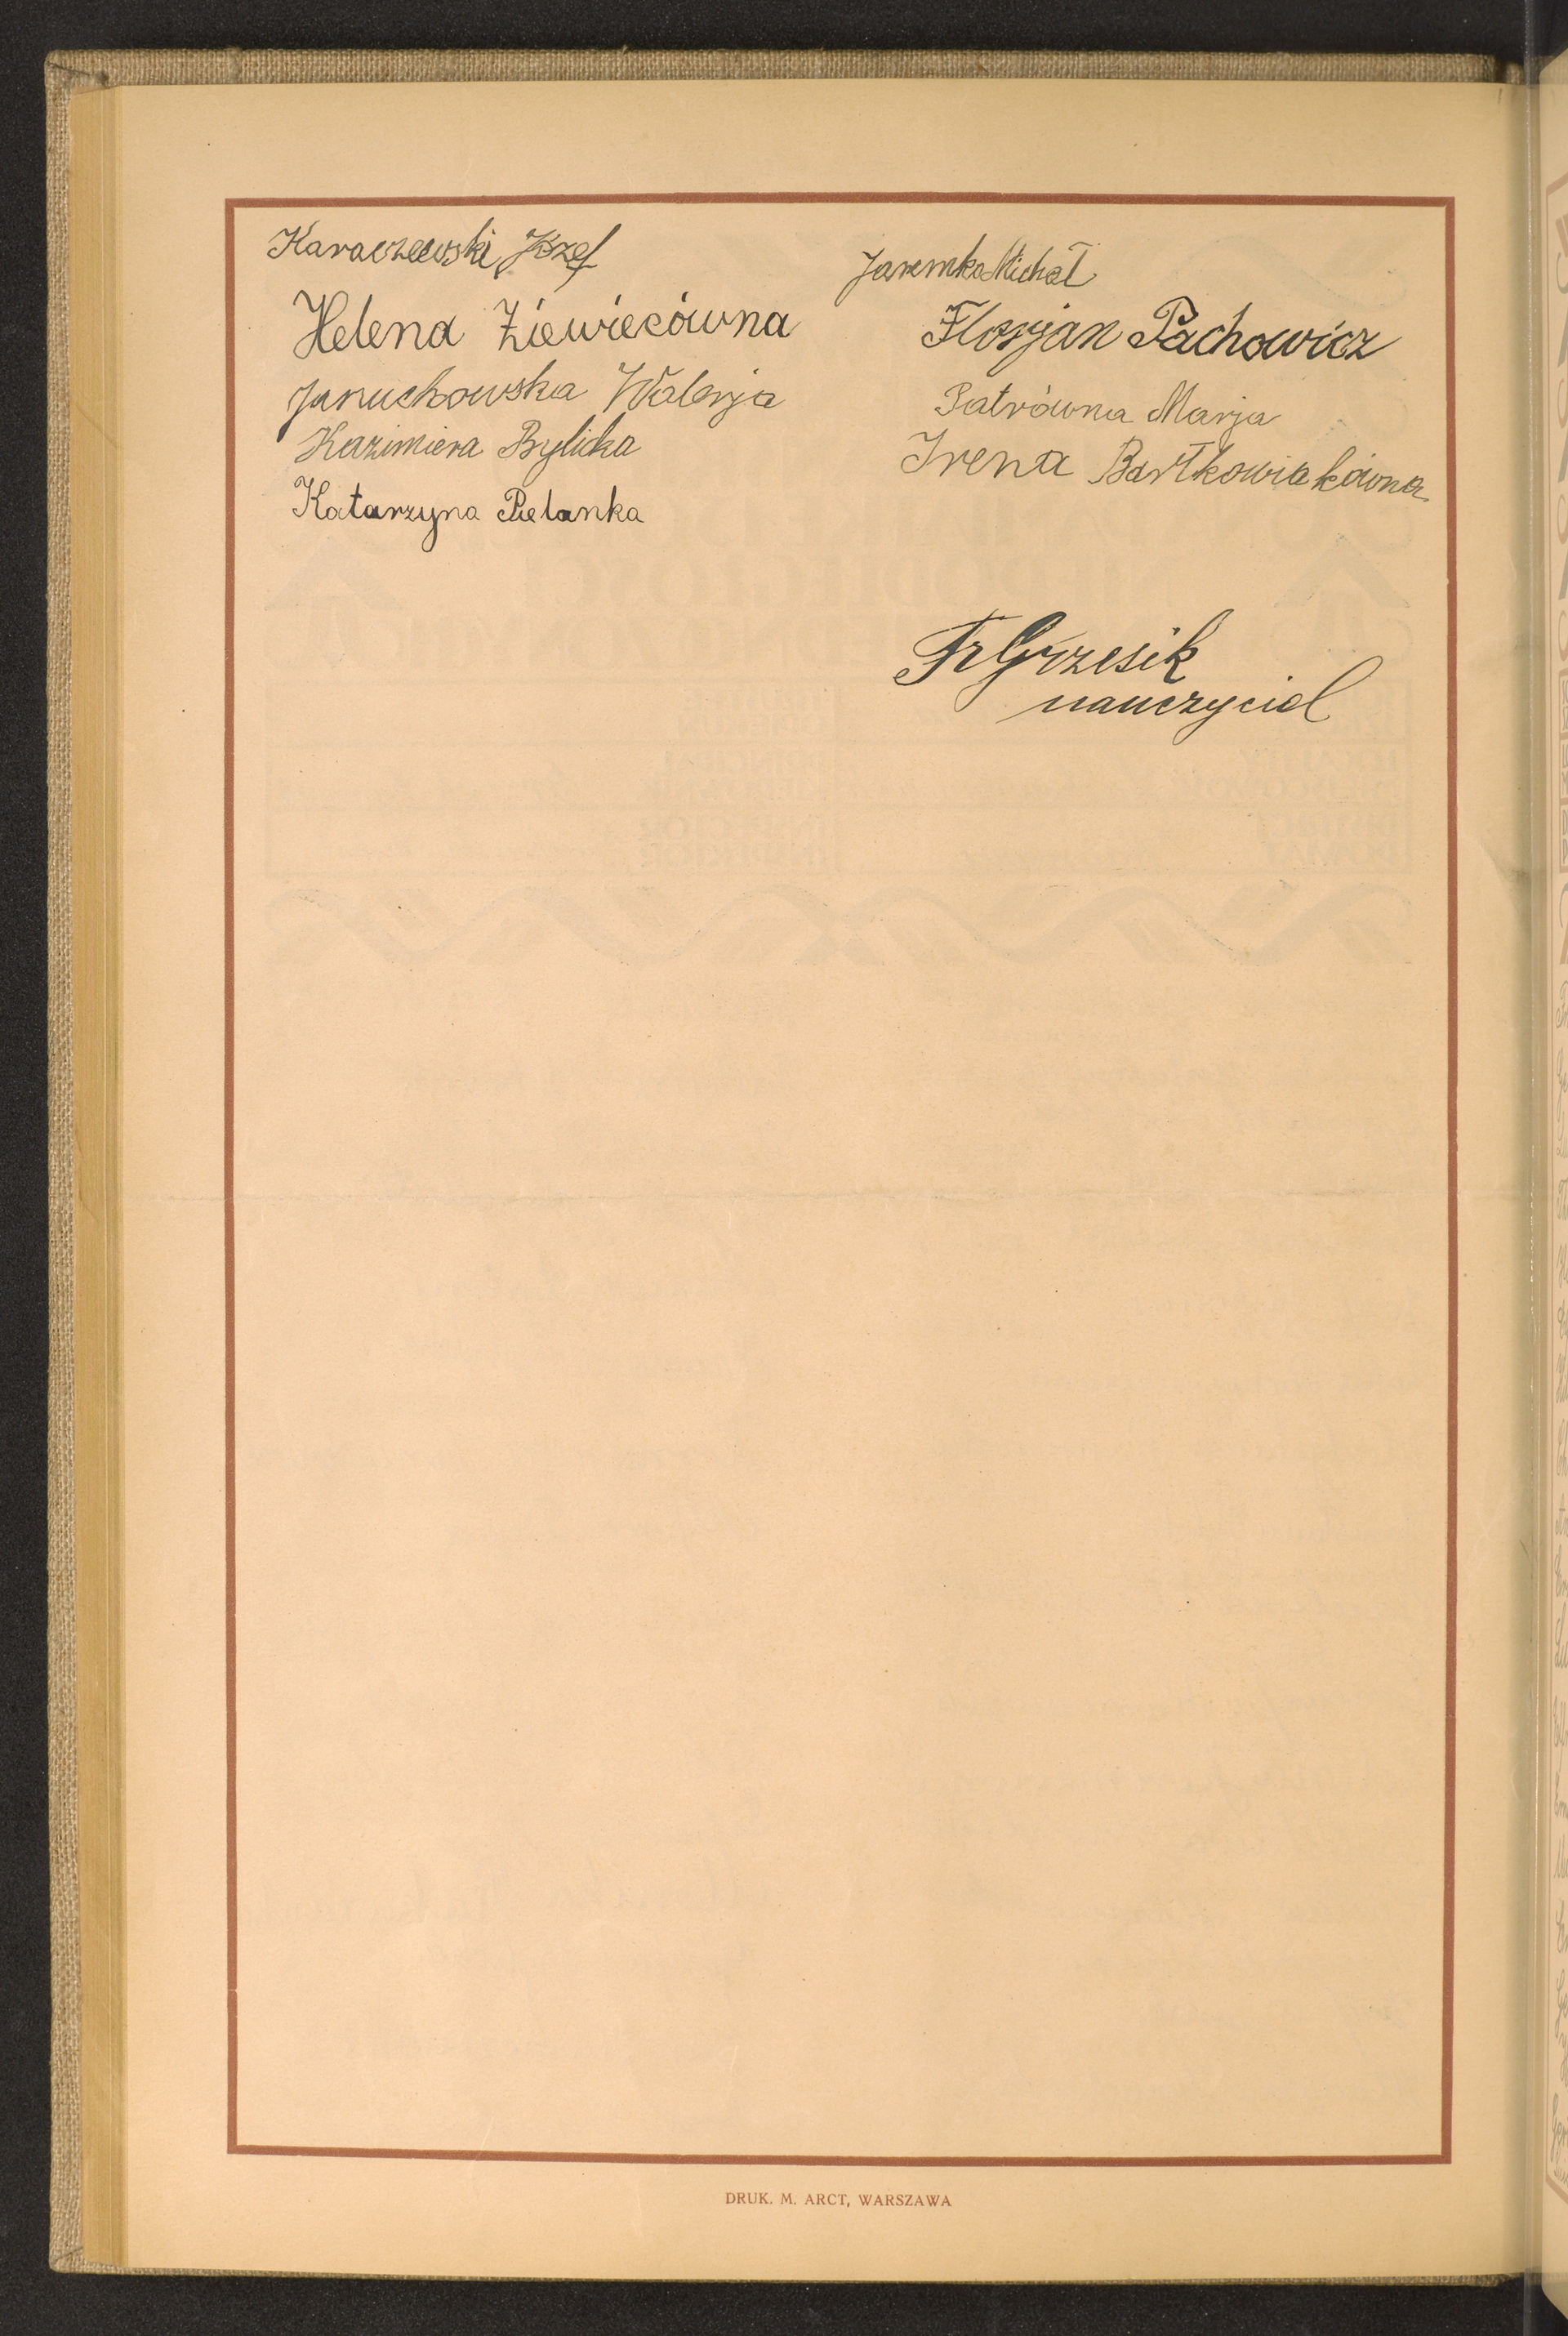 Karaczewski Józef
Helena Ziewiecówna
Januchowska Walerja
Kazimiera Bylicka
Katarzyna Pielanka
Jaremko Michał
Florjan Pachowicz
Patrówna Marja
Irena Bartkowiakówna
Fr Grzesik
nauczyciel
DRUK. M. ARCT, WARSZAWA